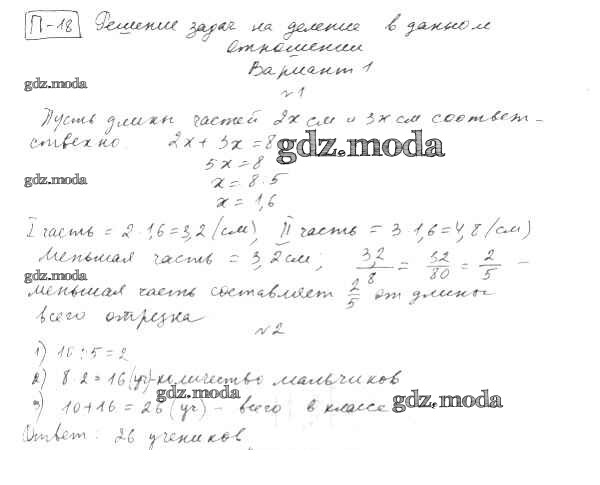 П-18 Решение задач на деление в данном
отношении
Вариант 1
gdz.moda
№1
Пусть длины частей 2x см и 3x см соответ-
ственно. 2x + 3x = 8
gdz.moda
5x = 8
gdz.moda
x = 8 : 5
x = 1,6
I часть = 2 · 1,6 = 3,2 (см), II часть = 3 · 1,6 = 4,8 (см)
Меньшая часть = 3,2 см, 3,2/8 = 32/80 = 2/5 -
gdz.moda
меньшая часть составляет 2/5 от длины
всего отрезка
№2
1) 10 : 5 = 2
2) 8 · 2 = 16 (уч) - количество мальчиков
gdz.moda
3) 10 + 16 = 26 (уч) - всего в классе
gdz.moda
Ответ: 26 учеников